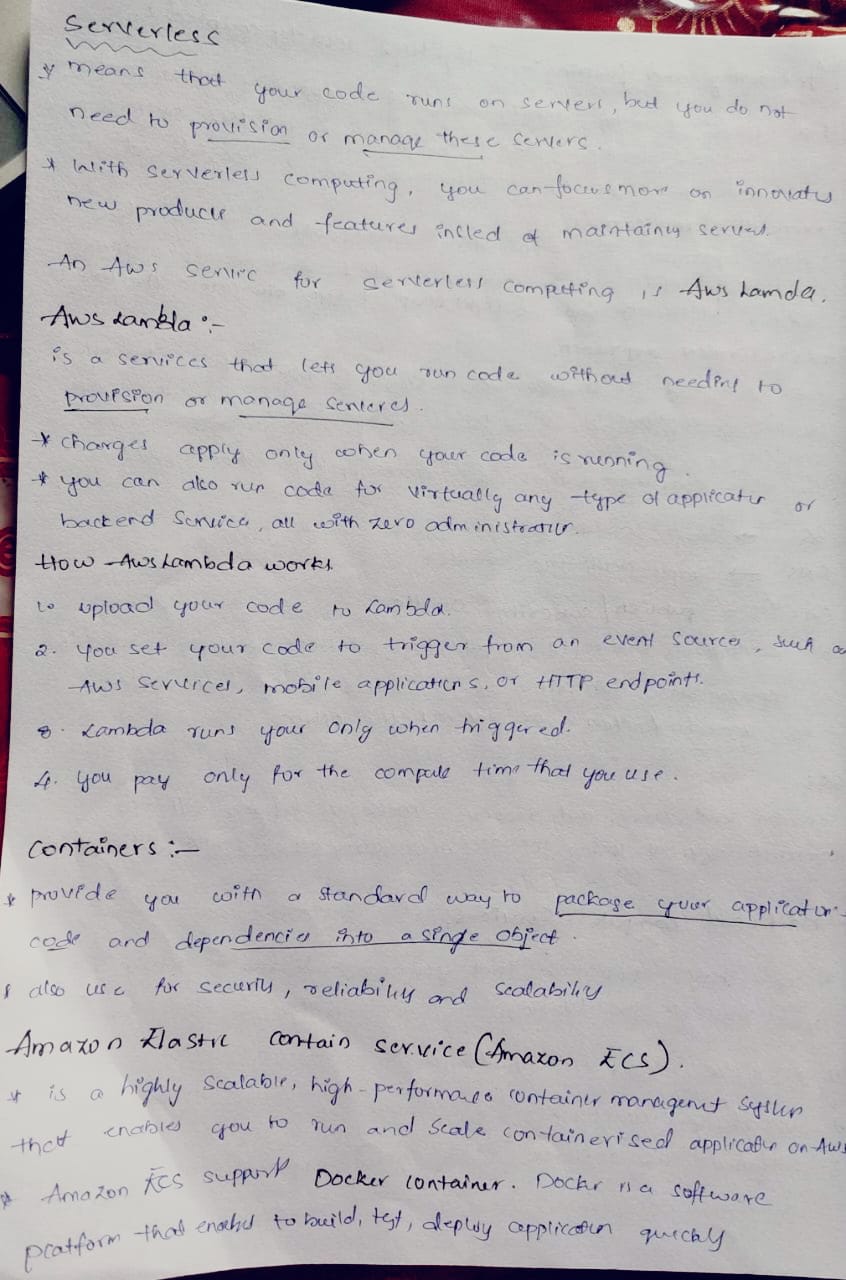 Serverless
* means that your code runs on servers, but you do not
need to provision or manage these servers.
* With serverless computing, you can focus more on innovatng
new products and features insted of maintaing servers.
An Aws servic for serverless computing is Aws Lamda.
Aws Lambla :-
is a services that lets you run code without needing to
provision or manage serveres.
* charges apply only when your code is running.
* you can also run code for virtually any type of applicatin or
backend service, all with zero administration.
How Aws Lambda works.
1. upload your code to Lambda.
2. you set your code to trigger from an event source, such as
Aws services, mobile applications, or HTTP endpoints.
3. Lambda runs your only when triggered.
4. you pay only for the compute time that you use.
Containers :-
* provide you with a standard way to package your applicaton
code and dependencies into a singe object.
* also use for security, reliability and scalability
Amazon Elastic Contain service (Amazon ECS).
* is a highly scalable, high-performance container managemet system
that enables you to run and scale containerised application on Aws
* Amazon ECS support Docker container. Docker is a software
platform that enabled to build, test, deploy application quickly